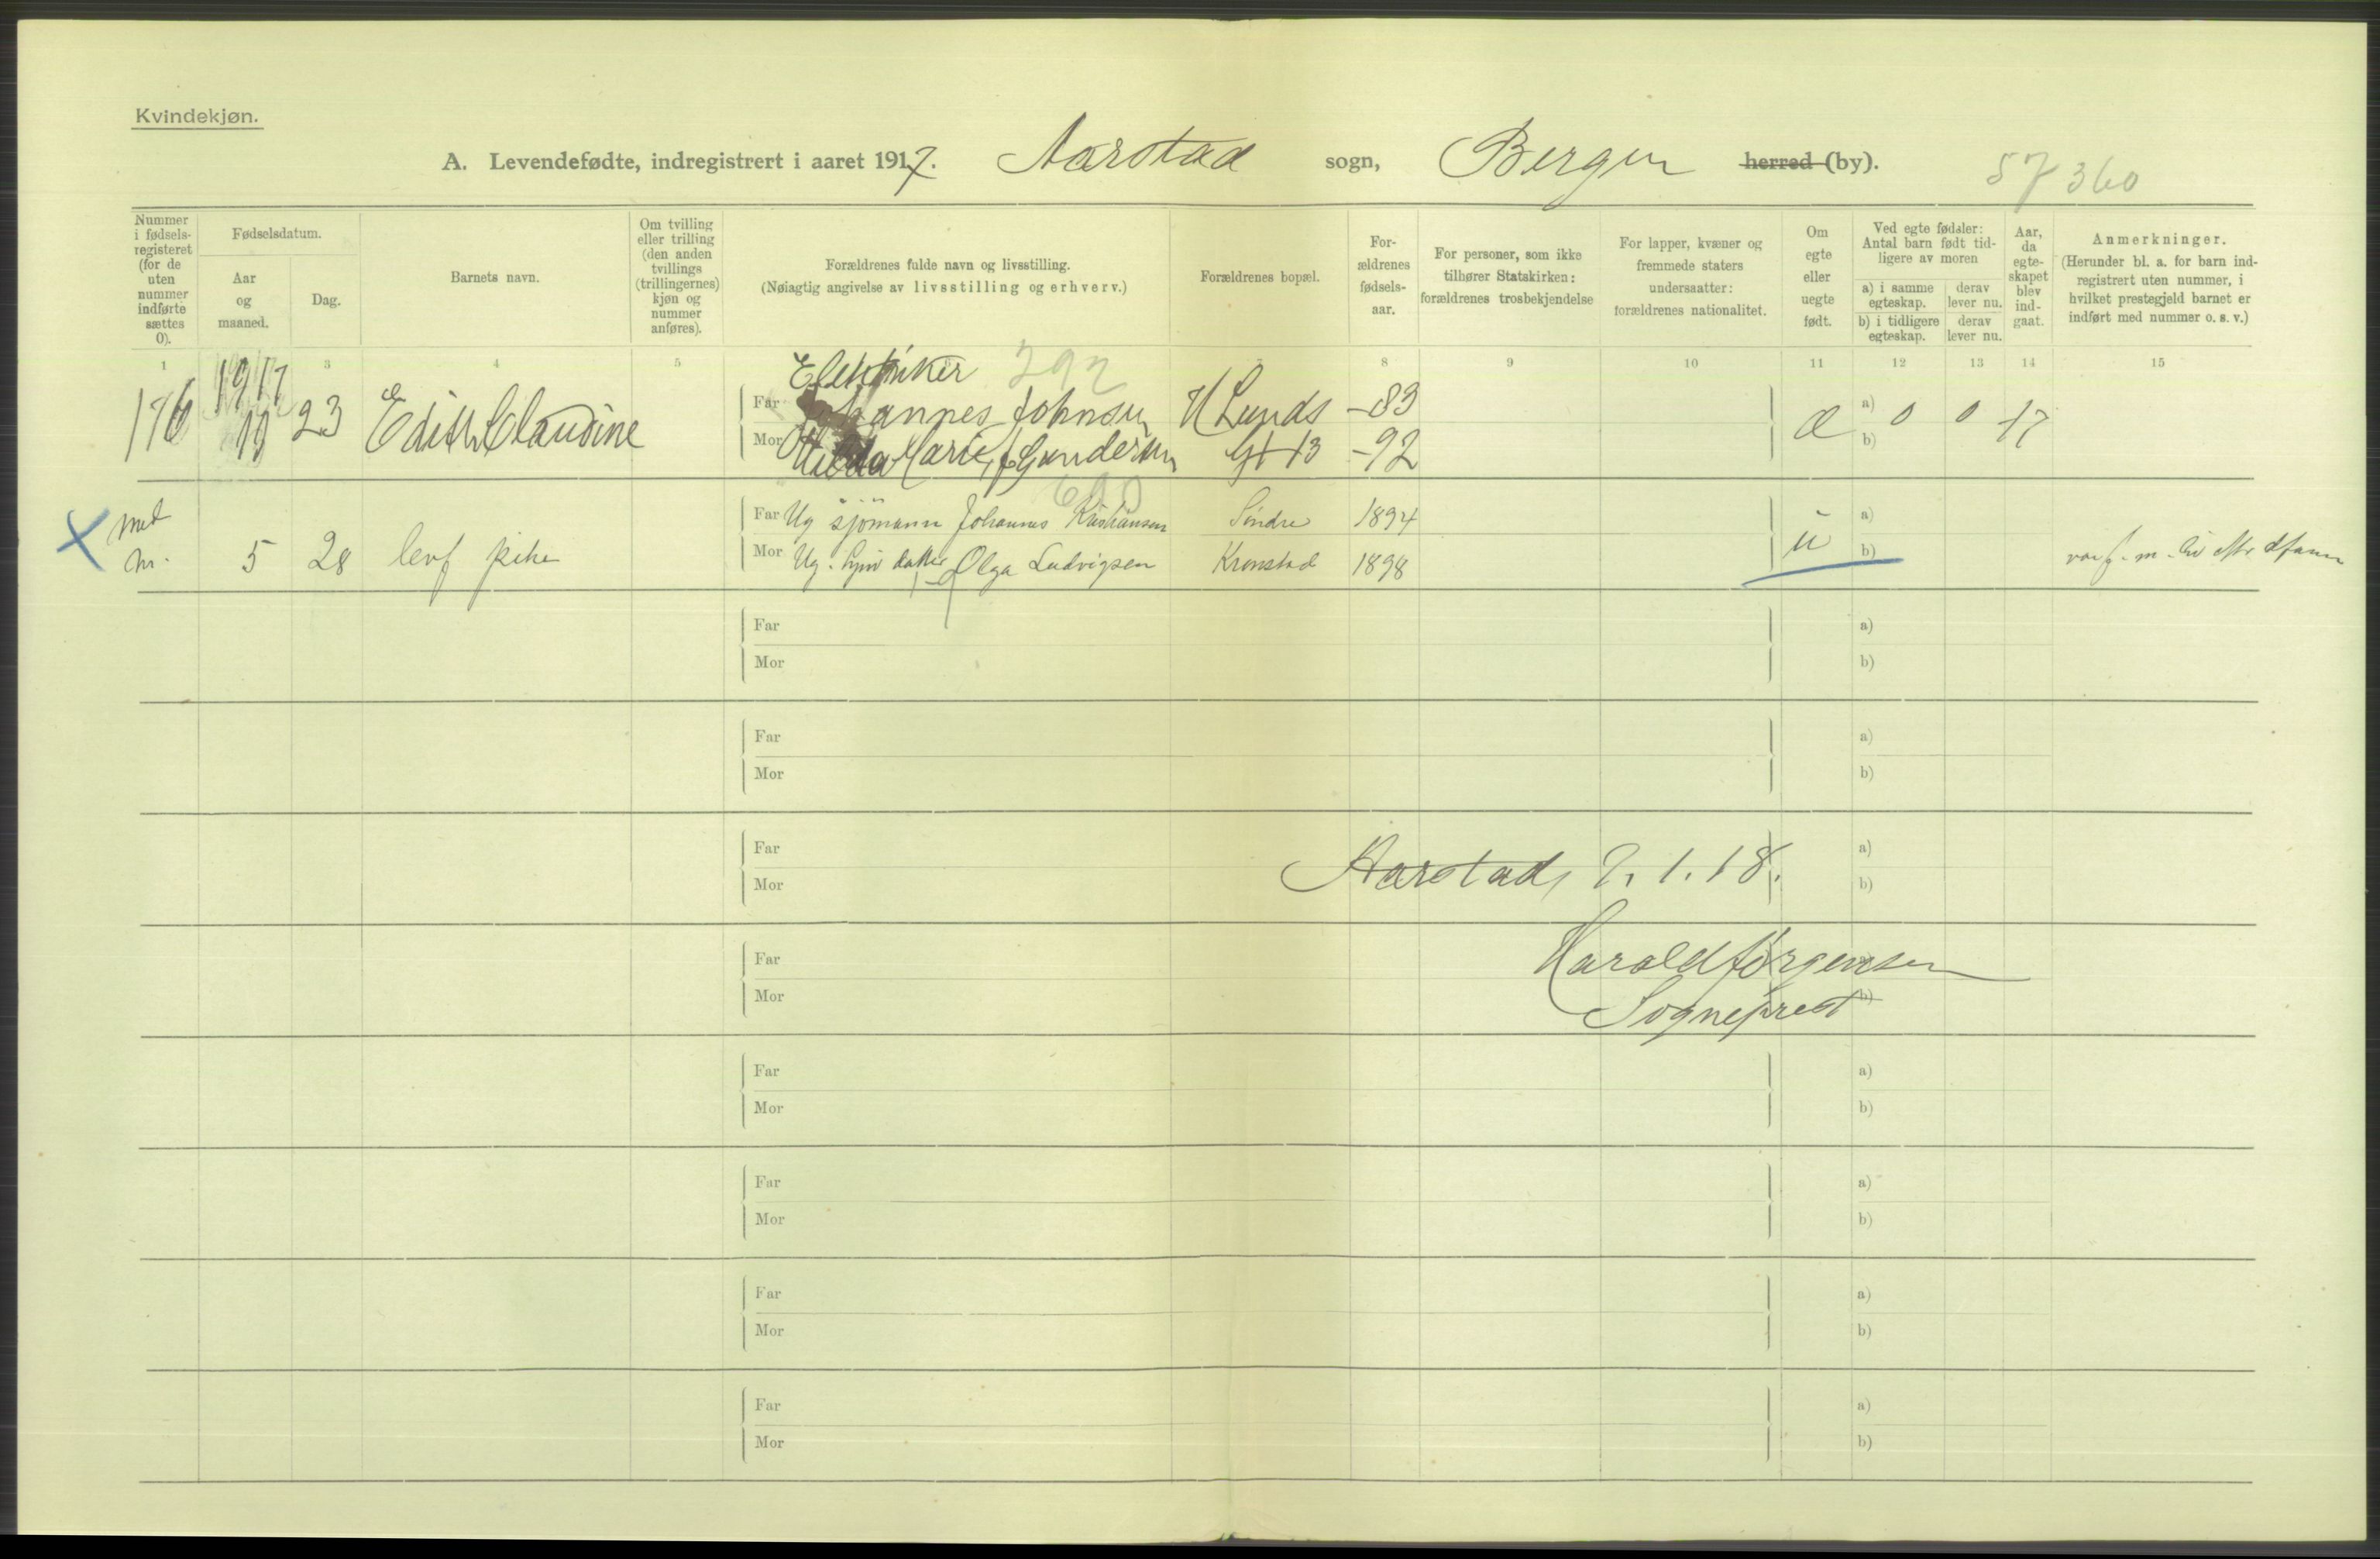 Kvindekjøn.
A. Levendefødte, indregistrert i aaret 1917. Aarstad sogn, Bergen herred (by). 57 360
Nummer i fødselsregisteret (for de uten nummer indførte sættes 0).
Fødselsdatum.
Aar og maaned.
Dag.
Barnets navn.
Om tvilling eller trilling (den anden tvillings (trillingernes) kjøn og nummer anføres).
Forældrenes fulde navn og livsstilling.
(Nøiagtig angivelse av livsstilling og erhverv.)
Forældrenes bopæl.
Forældrenes fødselsaar.
For personer, som ikke tilhører Statskirken: forældrenes trosbekjendelse
For lapper, kvæner og fremmede staters undersaatter: forældrenes nationalitet.
Om egte eller uegte født.
Ved egte fødsler: Antal barn født tidligere av moren
a) i samme egteskap.
derav lever nu.
b) i tidligere egteskap.
derav lever nu.
Aar, da egteskapet blev indgaat.
Anmerkninger.
(Herunder bl. a. for barn indregistrert uten nummer, i hvilket prestegjeld barnet er indført med nummer o. s. v.)
1 3 4 5 8 9 10 11 12 13 14 15
Elektriker 292
176 1917 11 23 Edith Claudine
Far Johannes Johnsen H Lunds -83 a) 0 0 17
Mor Marie f Gundersen Gt 13 -92 b)
Far Ug sjömann Johannes Kristiansen Söndre 1894 ü a)
5 28 levf pike
Mor Ug. datter Olga Ludvigsen Kronstad 1898 b)
Far a)
Mor b)
Far a)
Mor b)
Far a)
Aarstad, 7. 1. 18.
Mor b)
Far
Harald Jørgensen
Mor b)
Sogneprest
Far a)
Mor b)
Far a)
Mor b)
Far a)
Mor b)
Far a)
Mor b)